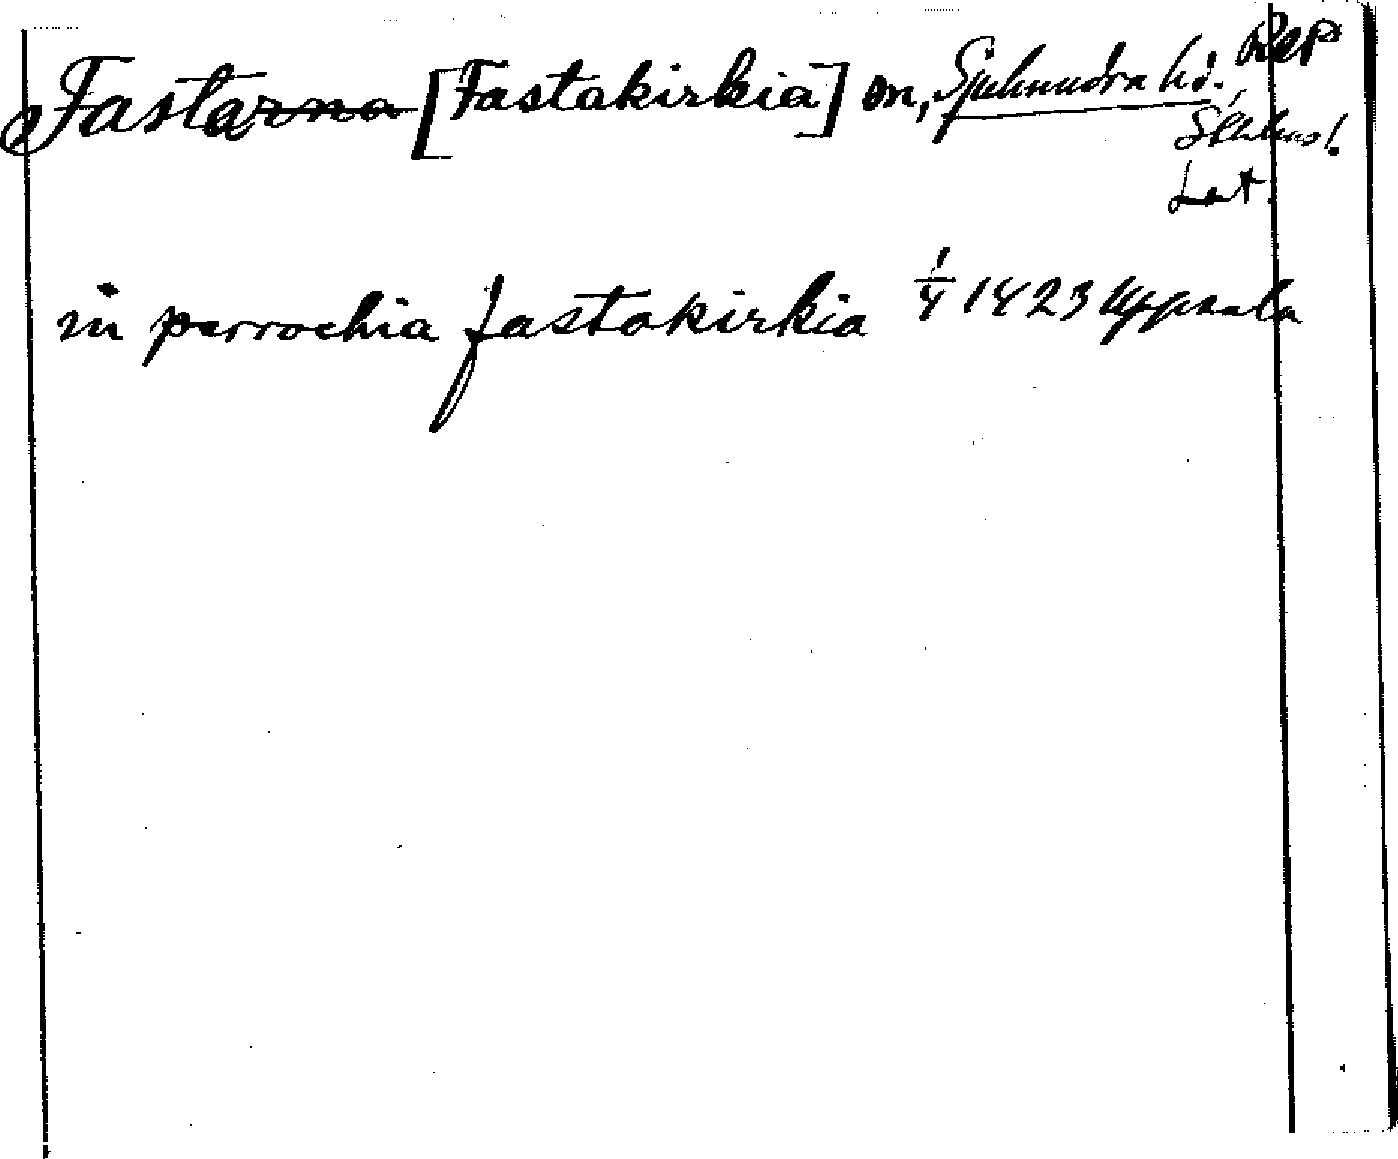 Fastarna [Fastakirkia] sn, Sjuhundra hd. Rep
Sthlms l.
Lat.
in parrochia fastakirkia 1/4 1423 Uppsala